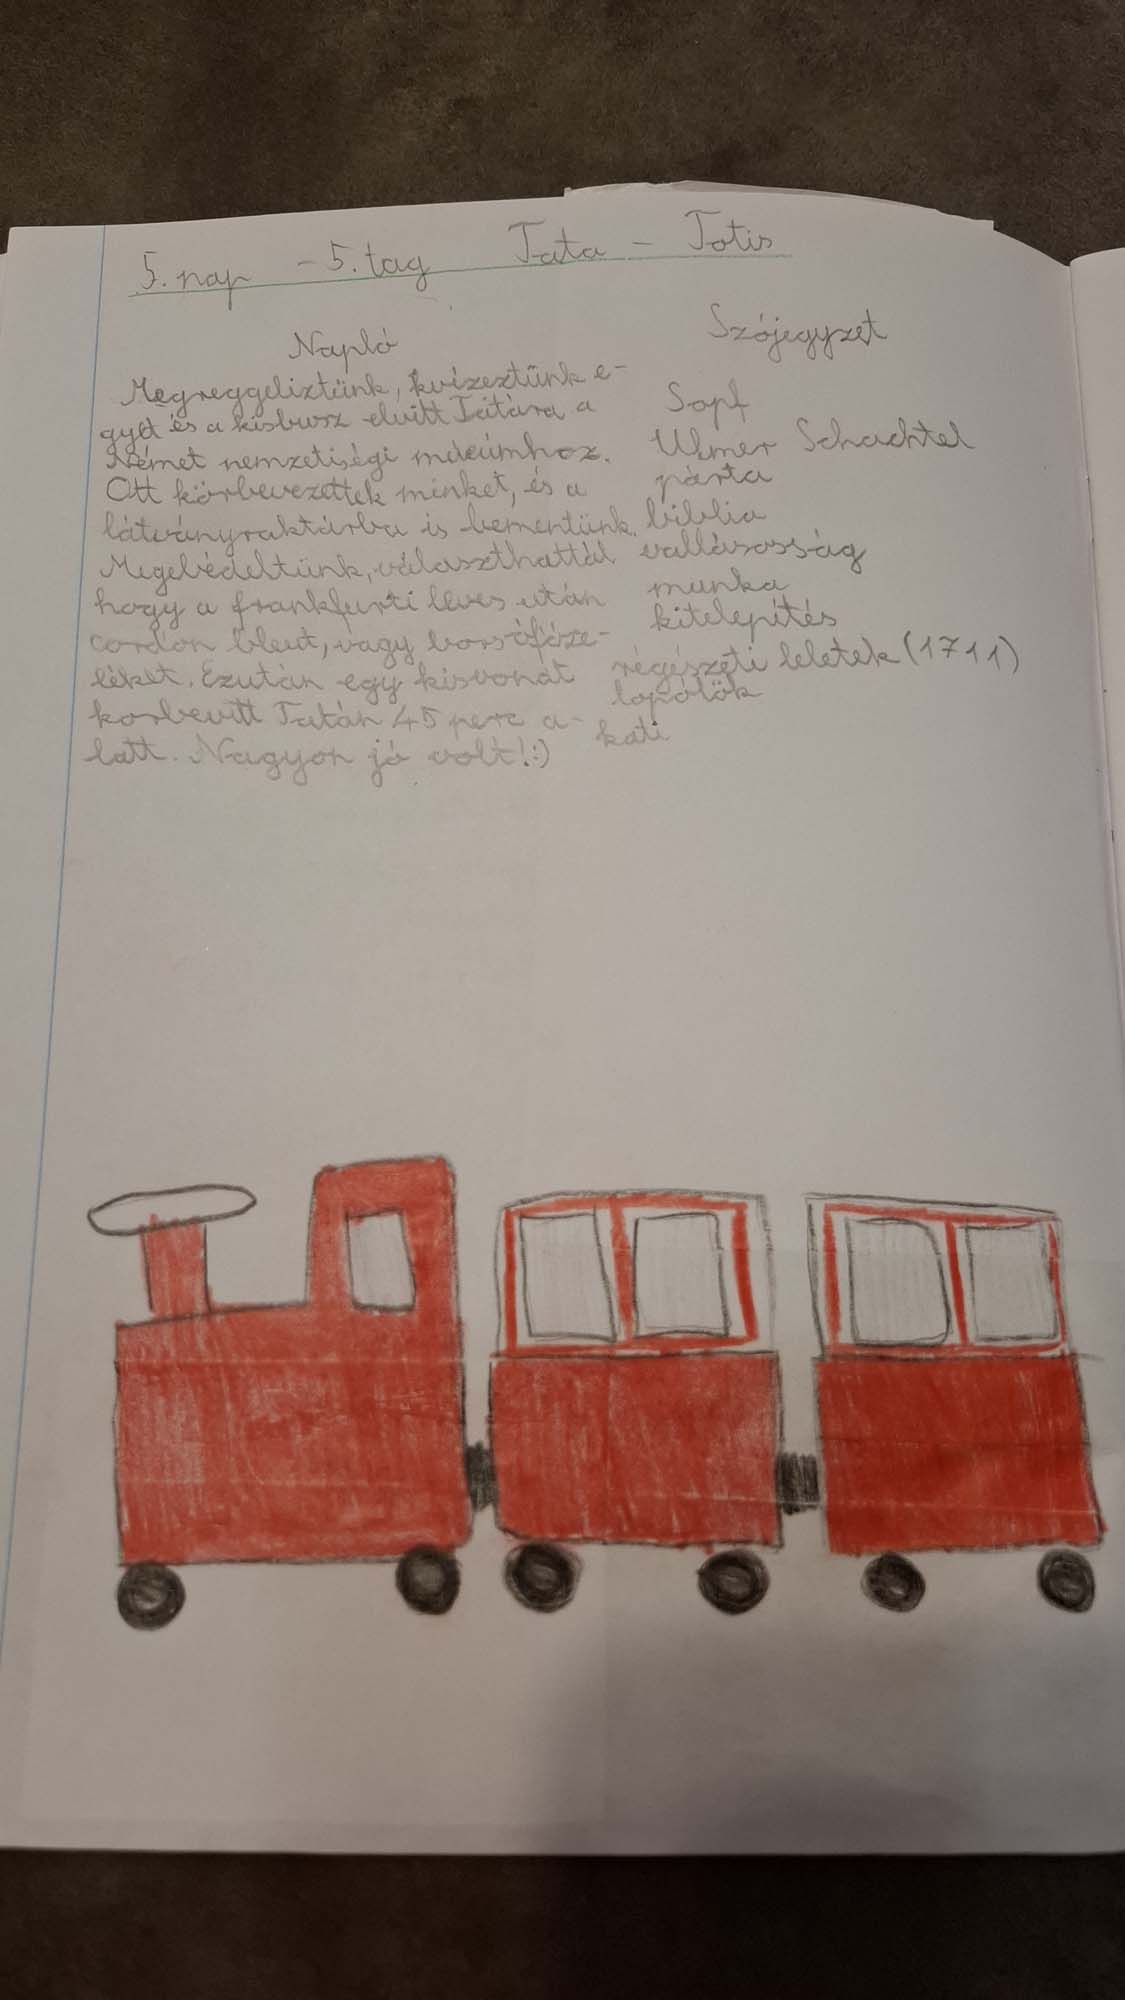 5. nap - 5. tag Tata - Totis
Napló
Megreggeliztünk, kvízeztünk e-
gyet és a kisbusz elvitt Tatára a
Német nemzetiségi múzeumhoz.
Ott körbevezettek minket, és a
látványraktárba is bementünk.
Megebédeltünk, választhattál
hogy a frankfurti leves után
cordon bleut, vagy borsófőze-
léket. Ezután egy kisvonat
körbevitt Tatán 45 perc a-
latt. Nagyon jó volt! :)
Szójegyzet
Sopf
Ulmer Schachtel
párta
biblia
vallásosság
munka
kitelepítés
régészeti leletek (1711)
kati